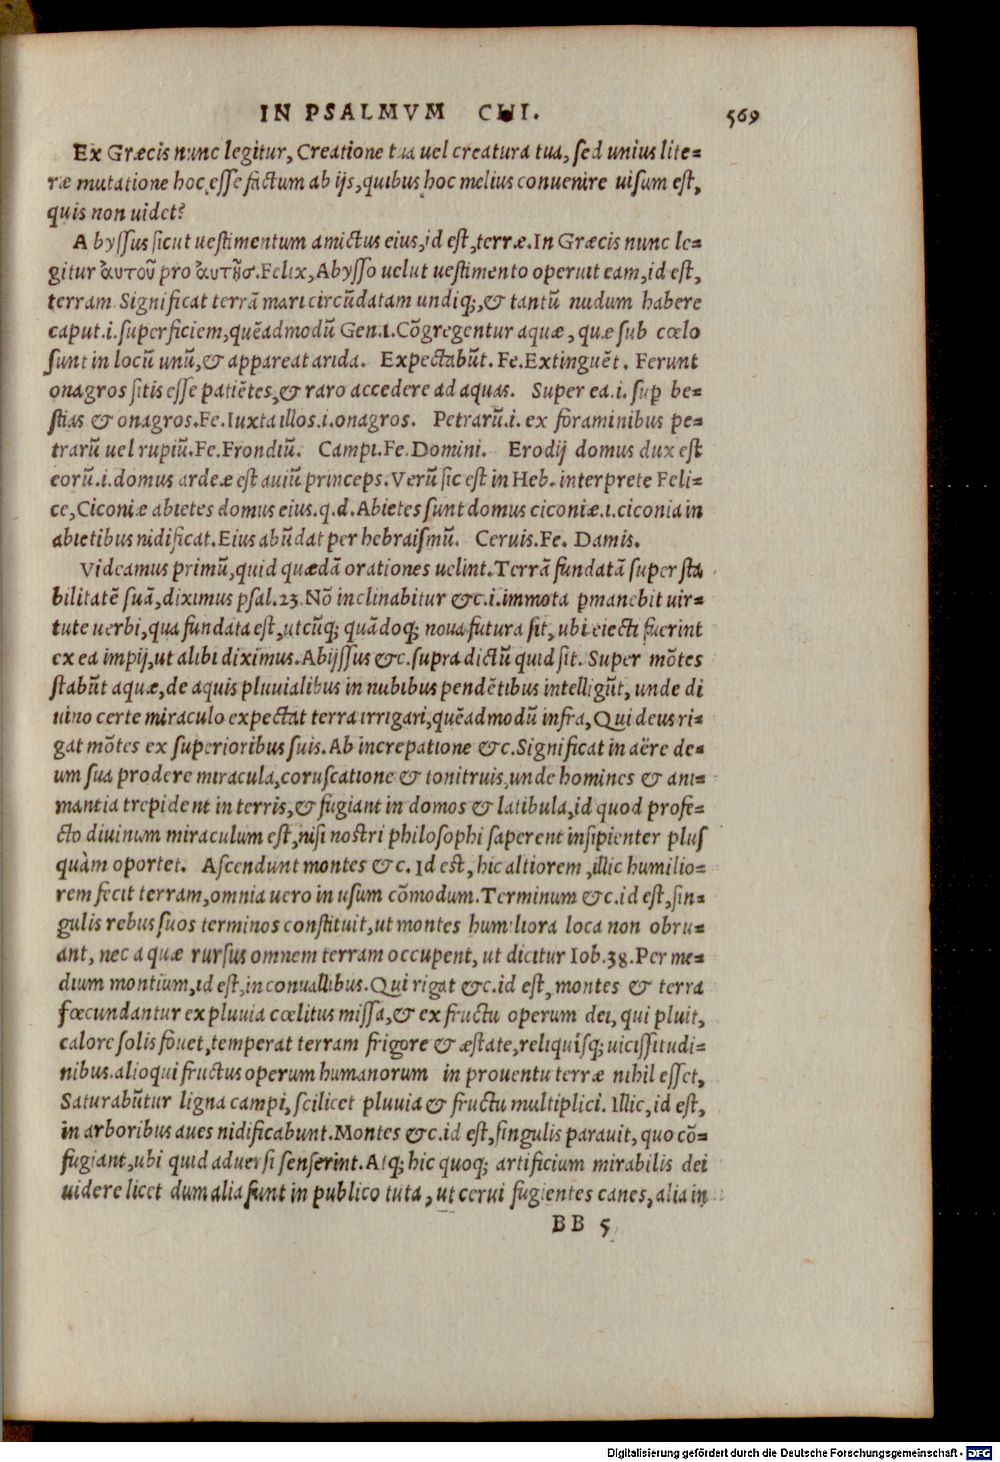 IN PSALMVM CIII. 569
Ex Græcis nunc legitur, Creatione tua uel creatura tua, sed unius lite=
ræ mutatione hoc esse factum ab ijs, quibus hoc melius conuenire uisum est,
quis non uidet?
Abyssus sicut uestimentum amictus eius, id est, terræ. In Græcis nunc le=
gitur ἀυτοῦ pro ἀυτῆς. Felix, Abysso uelut uestimento operuit eam, id est,
terram. Significat terrã mari circũdatam undiq;, & tantũ nudum habere
caput .i. superficiem, quẽadmodũ Gen. 1. Cõgregentur aquæ, quæ sub cœlo
sunt in locũ unũ, & appareat arida. Expectabũt. Fe. Extinguẽt. Ferunt
onagros sitis esse patiẽtes, & raro accedere ad aquas. Super ea .i. sup be=
stias & onagros. Fe. Iuxta illos .i. onagros. Petrarũ .i. ex foraminibus pe=
trarũ uel rupiũ. Fe. Frondiũ. Campi. Fe. Domini. Erodij domus dux est
eorũ .i. domus ardeæ est auiũ princeps. Verũ sic est in Heb. interprete Feli=
ce, Ciconiæ abietes domus eius. q.d. Abietes sunt domus ciconiæ .i. ciconia in
abietibus nidificat. Eius abũdat per hebraismũ. Ceruis. Fe. Damis.
Videamus primũ, quid quædã orationes uelint. Terrã fundatã super sta
bilitatẽ suã, diximus psal. 23. Nõ inclinabitur &c. i. immota pmanebit uir=
tute uerbi, qua fundata est, utcũq; quãdoq; noua futura sit, ubi eiecti fuerint
ex ea impij, ut alibi diximus. Abijssus &c. supra dictũ quid sit. Super mõtes
stabũt aquæ, de aquis pluuialibus in nubibus pendẽtibus intelligũt, unde di
uino certe miraculo expectat terra irrigari, quẽadmodũ infra, Qui deus ri=
gat mõtes ex superioribus suis. Ab increpatione &c. Significat in aëre de=
um sua prodere miracula, coruscatione & tonitruis, unde homines & ani=
mantia trepident in terris, & fugiant in domos & latibula, id quod profe=
cto diuinum miraculum est, nisi nostri philosophi saperent insipienter plus
quàm oportet. Ascendunt montes &c. Id est, hic altiorem, illic humilio=
rem fecit terram, omnia uero in usum cõmodum. Terminum &c. id est, sin=
gulis rebus suos terminos constituit, ut montes humiliora loca non obru=
ant, nec aquæ rursus omnem terram occupent, ut dicitur Iob. 38. Per me=
dium montium, id est, in conuallibus. Qui rigat &c. id est, montes & terra
fœcundantur ex pluuia cœlitus missa, & ex fructu operum dei, qui pluit,
calore solis fouet, temperat terram frigore & æstate, reliquisq; uicissitudi=
nibus. alioqui fructus operum humanorum in prouentu terræ nihil esset,
Saturabũtur ligna campi, scilicet pluuia & fructu multiplici. Illic, id est,
in arboribus aues nidificabunt. Montes &c. id est, singulis parauit, quo cõ=
fugiant, ubi quid aduersi senserint. Atq; hic quoq; artificium mirabilis dei
uidere licet dum alia sunt in publico tuta, ut cerui fugientes canes, alia in
BB 5
Digitalisierung gefördert durch die Deutsche Forschungsgemeinschaft - DFG